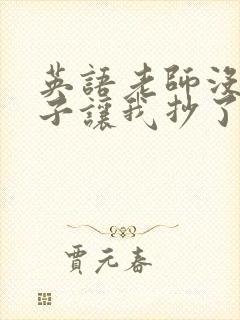 英語老師沒
子讓我抄了
賈元春